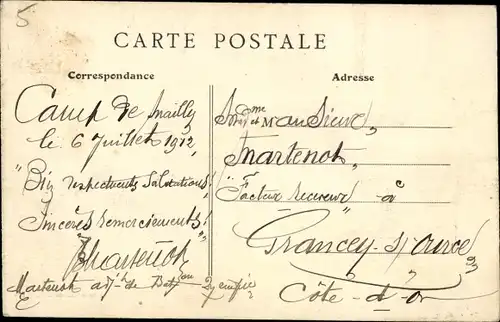 5
CARTE POSTALE
Correspondance
Adresse
Camp de Mailly
le 6 Juillet 1912,
Respectueuses Salutations!
Sincères remerciements!
Martenot
Martenot adjt de Bat
Monsieur
Martenot,
Facteur Receveur à
Grancey-s/-Ource
Côte-d'Or